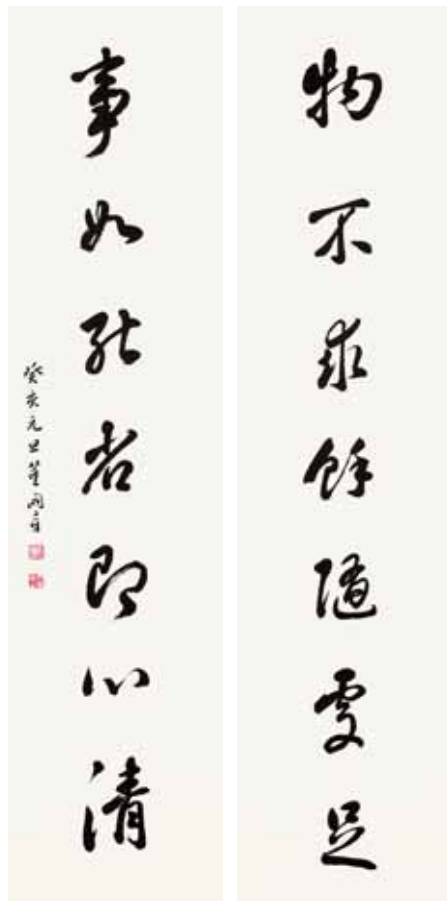 物不求餘隨處足
事如能省即心清
癸亥元旦董開章